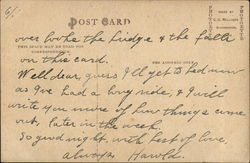 6/.
POST CARD
over looks the bridge & the falls
THIS SPACE MAY BE USED FOR
CORRESPONDENCE
THE ADDRESS ONLY
on this card.
Well dear, guess I'll get to bed now
as I've had a long ride, & I will
write you more of how things come
out, later in the week.
So good night, with best of love,
always Harold.
MADE BY